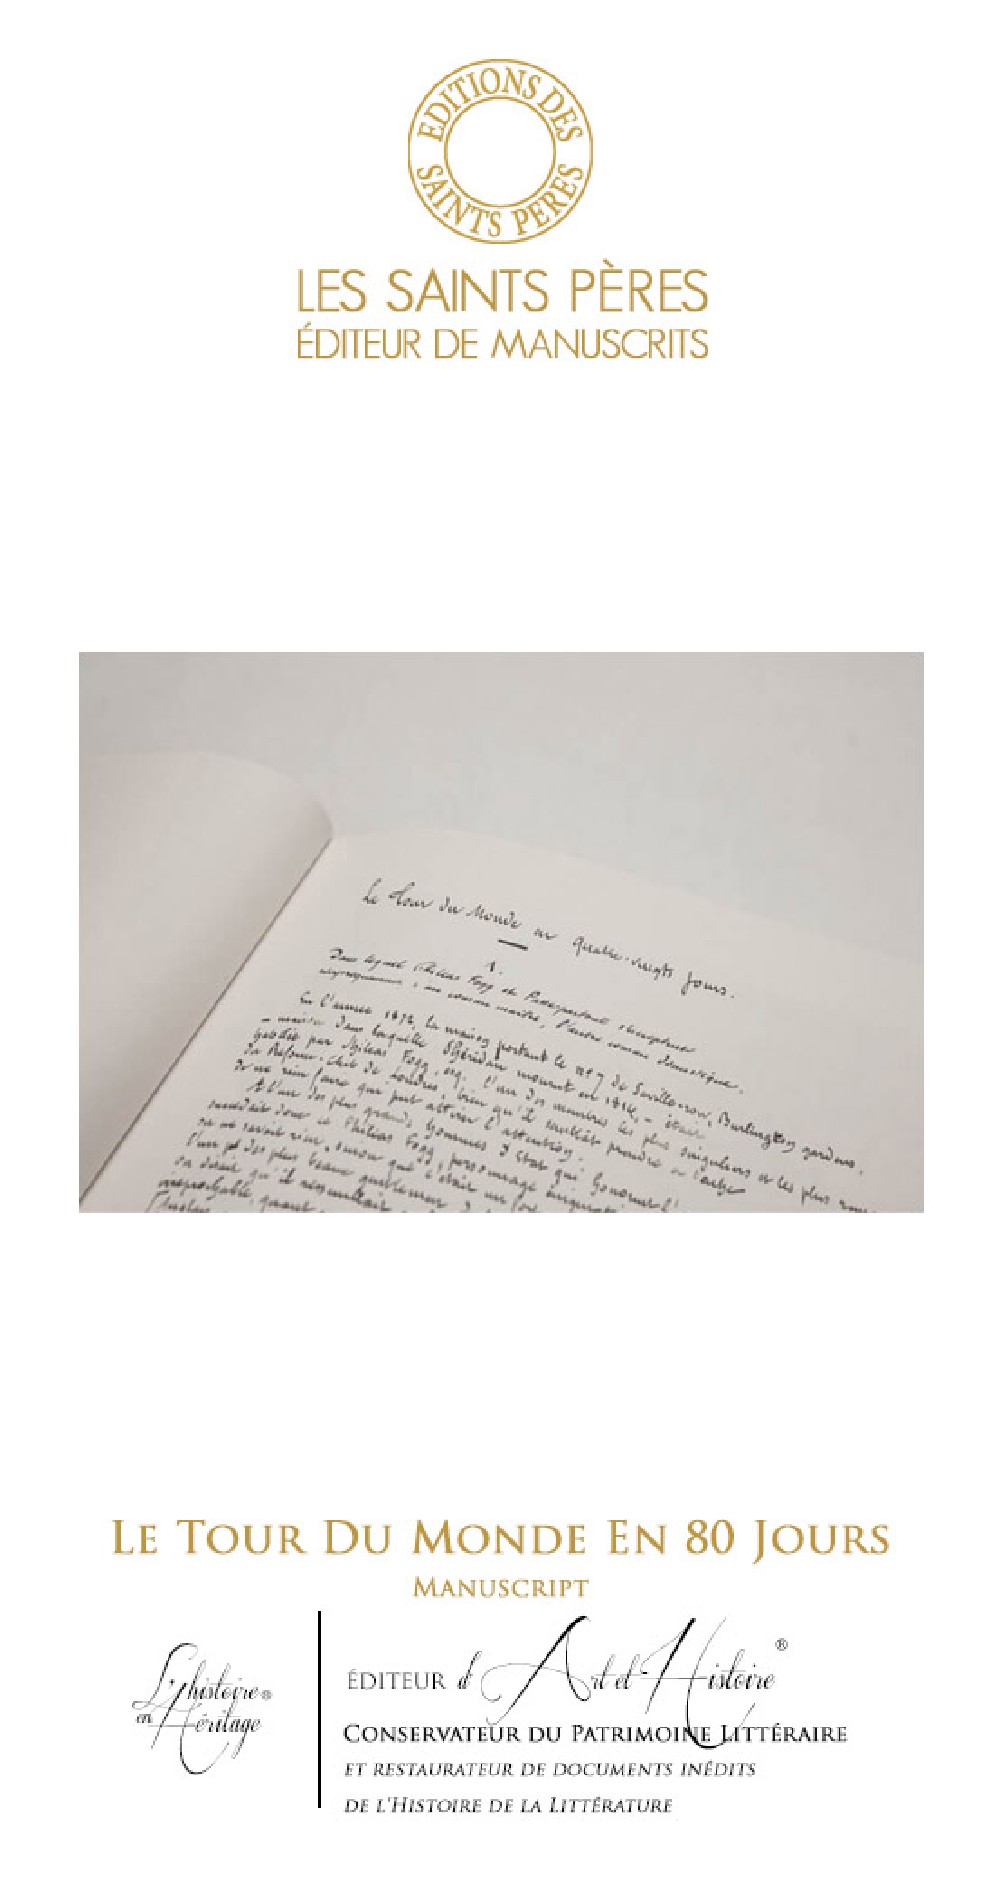 EDITIONS DES
SAINTS PERES
LES SAINTS PÈRES
ÉDITEUR DE MANUSCRITS
Le Tour du Monde en Quatre-vingts Jours.
1.
Dans lequel Philéas Fogg et Passepartout s'acceptent
réciproquement, l'un comme maître, l'autre comme domestique.
En l'année 1872, la maison portant le no 7 de Saville-row, Burlington gardens,
– maison dans laquelle Shéridan mourut en 1814, – était
habitée par Philéas Fogg, esq., l'un des membres les plus singuliers et les plus
du Reform-club de Londres, bien qu'il semblât prendre à tâche
de ne rien faire qui pût attirer l'attention.
A l'un des plus grands hommes d'état qui honorent l'
succédait donc ce Philéas Fogg, personnage
on ne savait rien, sinon que c'était un
l'un des plus beaux gentlemen
On disait qu'il ressemblait
irréprochable, quant
LE TOUR DU MONDE EN 80 JOURS
MANUSCRIPT
L'histoire®
en Héritage
ÉDITEUR d'Art et Histoire®
CONSERVATEUR DU PATRIMOINE LITTÉRAIRE
ET RESTAURATEUR DE DOCUMENTS INÉDITS
DE L'HISTOIRE DE LA LITTÉRATURE